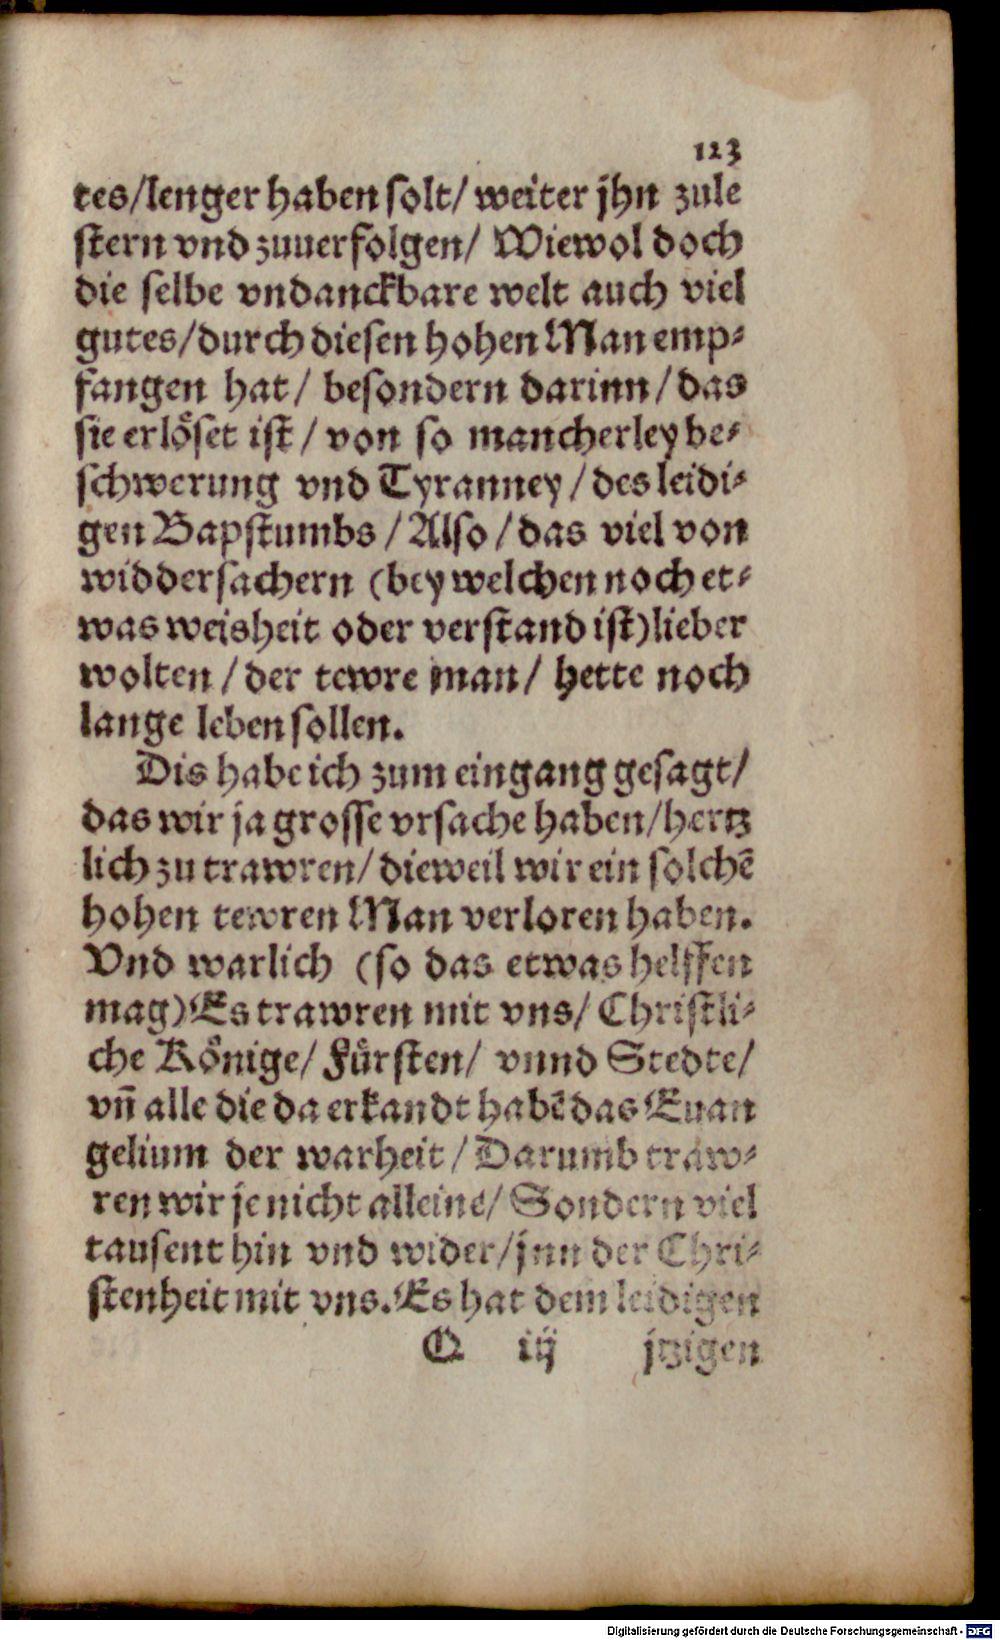 123
tes/lenger haben solt/ weiter jhn zule
stern vnd zuuerfolgen/ Wiewol doch
die selbe vndanckbare welt auch viel
gutes/durch diesen hohen Man emp-
fangen hat/ besondern darinn/das
sie erlöset ist/ von so mancherley be-
schwerung vnd Tyranney/des leidi-
gen Bapstumbs/Also/das viel von
widdersachern (bey welchen noch et-
was weisheit oder verstand ist)lieber
wolten/der tewre man/ hette noch
lange leben sollen.
Dis habe ich zum eingang gesagt/
das wir ja grosse vrsache haben/hertz
lich zu trawren/dieweil wir ein solchē
hohen tewren Man verloren haben.
Vnd warlich (so das etwas helffen
mag)Es trawren mit vns/ Christli-
che Könige/ Fürsten/ vnnd Stedte/
vñ alle die da erkandt habē das Euan
gelium der warheit/Darumb traw-
ren wir je nicht alleine/Sondern viel
tausent hin vnd wider/jnn der Chri-
stenheit mit vns.Es hat dem leidigen
Q iij jtzigen
Digitalisierung gefördert durch die Deutsche Forschungsgemeinschaft - DFG